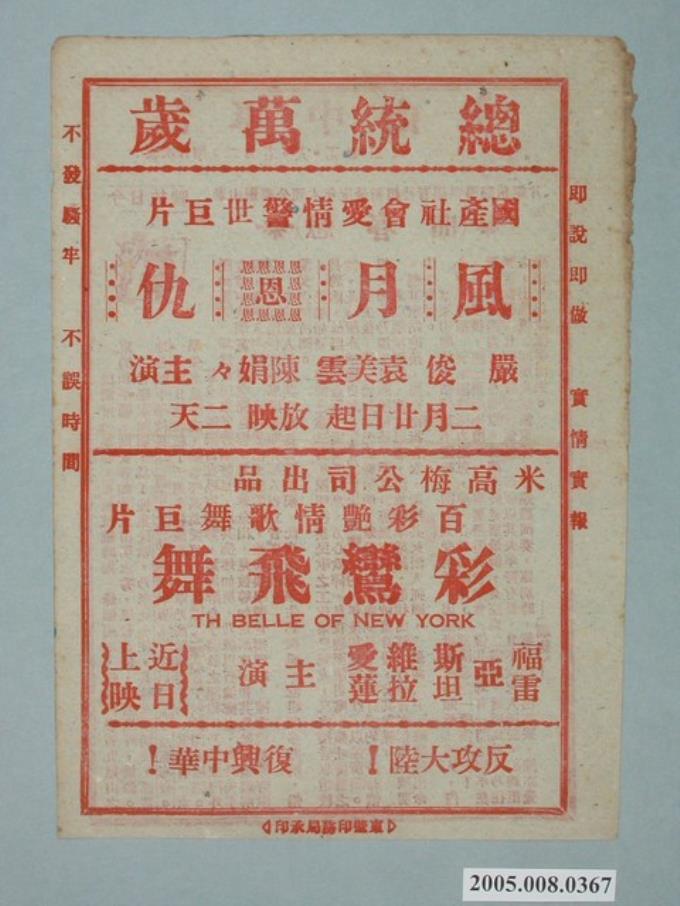 總統萬歲
國產社會愛情警世巨片
風月恩仇
嚴俊 袁美雲 陳娟々 主演
二月廿日起 放映二天
米高梅公司出品
百彩艷情歌舞巨片
彩鸞飛舞
TH BELLE OF NEW YORK
福雷亞斯坦
維拉愛蓮
主演
近日上映
反攻大陸！ 復興中華！
即說即做 實情實報
不發廢牢 不誤時間
東盤印務局承印
2005.008.0367